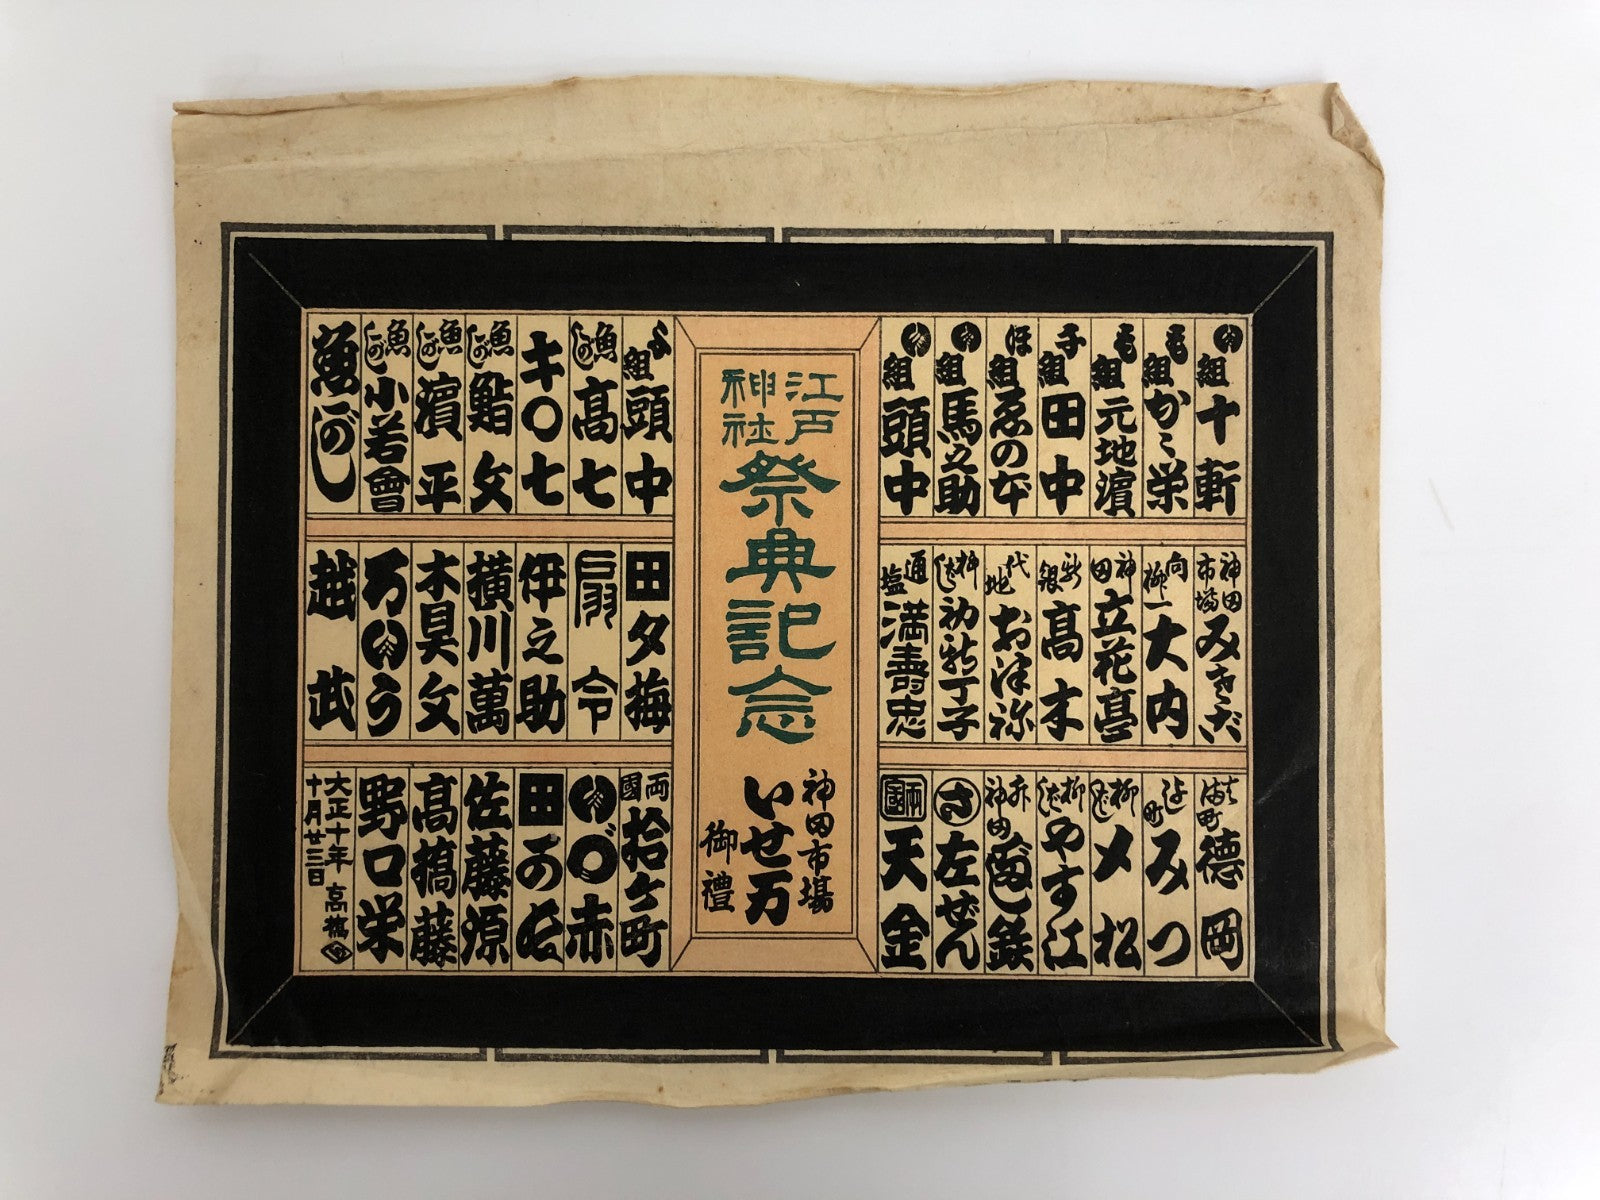 組十軒
も組かゞ栄
も組元地濱
子組田中
ほ組ゑの本
組馬之助
組頭中
神田市場みきだ
向柳一大内
神田立花亭
新銀高木
代地お津祢
柳ばし初新丁子
通塩満壽忠
徳岡
みつ
柳ばしメ松
柳ばしやす江
神田鉄
左ぜん
両國天金
江戸神社
祭典記念
神田市場
いせ万
御禮
よ組頭中
魚がし高七
キ〇七
魚がし鮨文
魚がし濱平
魚がし小若會
魚がし
田夕梅
扇令
伊之助
横川萬
木具文
越武
両國拾ヶ町
赤
佐藤源
高橋藤
野口栄
大正十年
十月廿三日
高橋